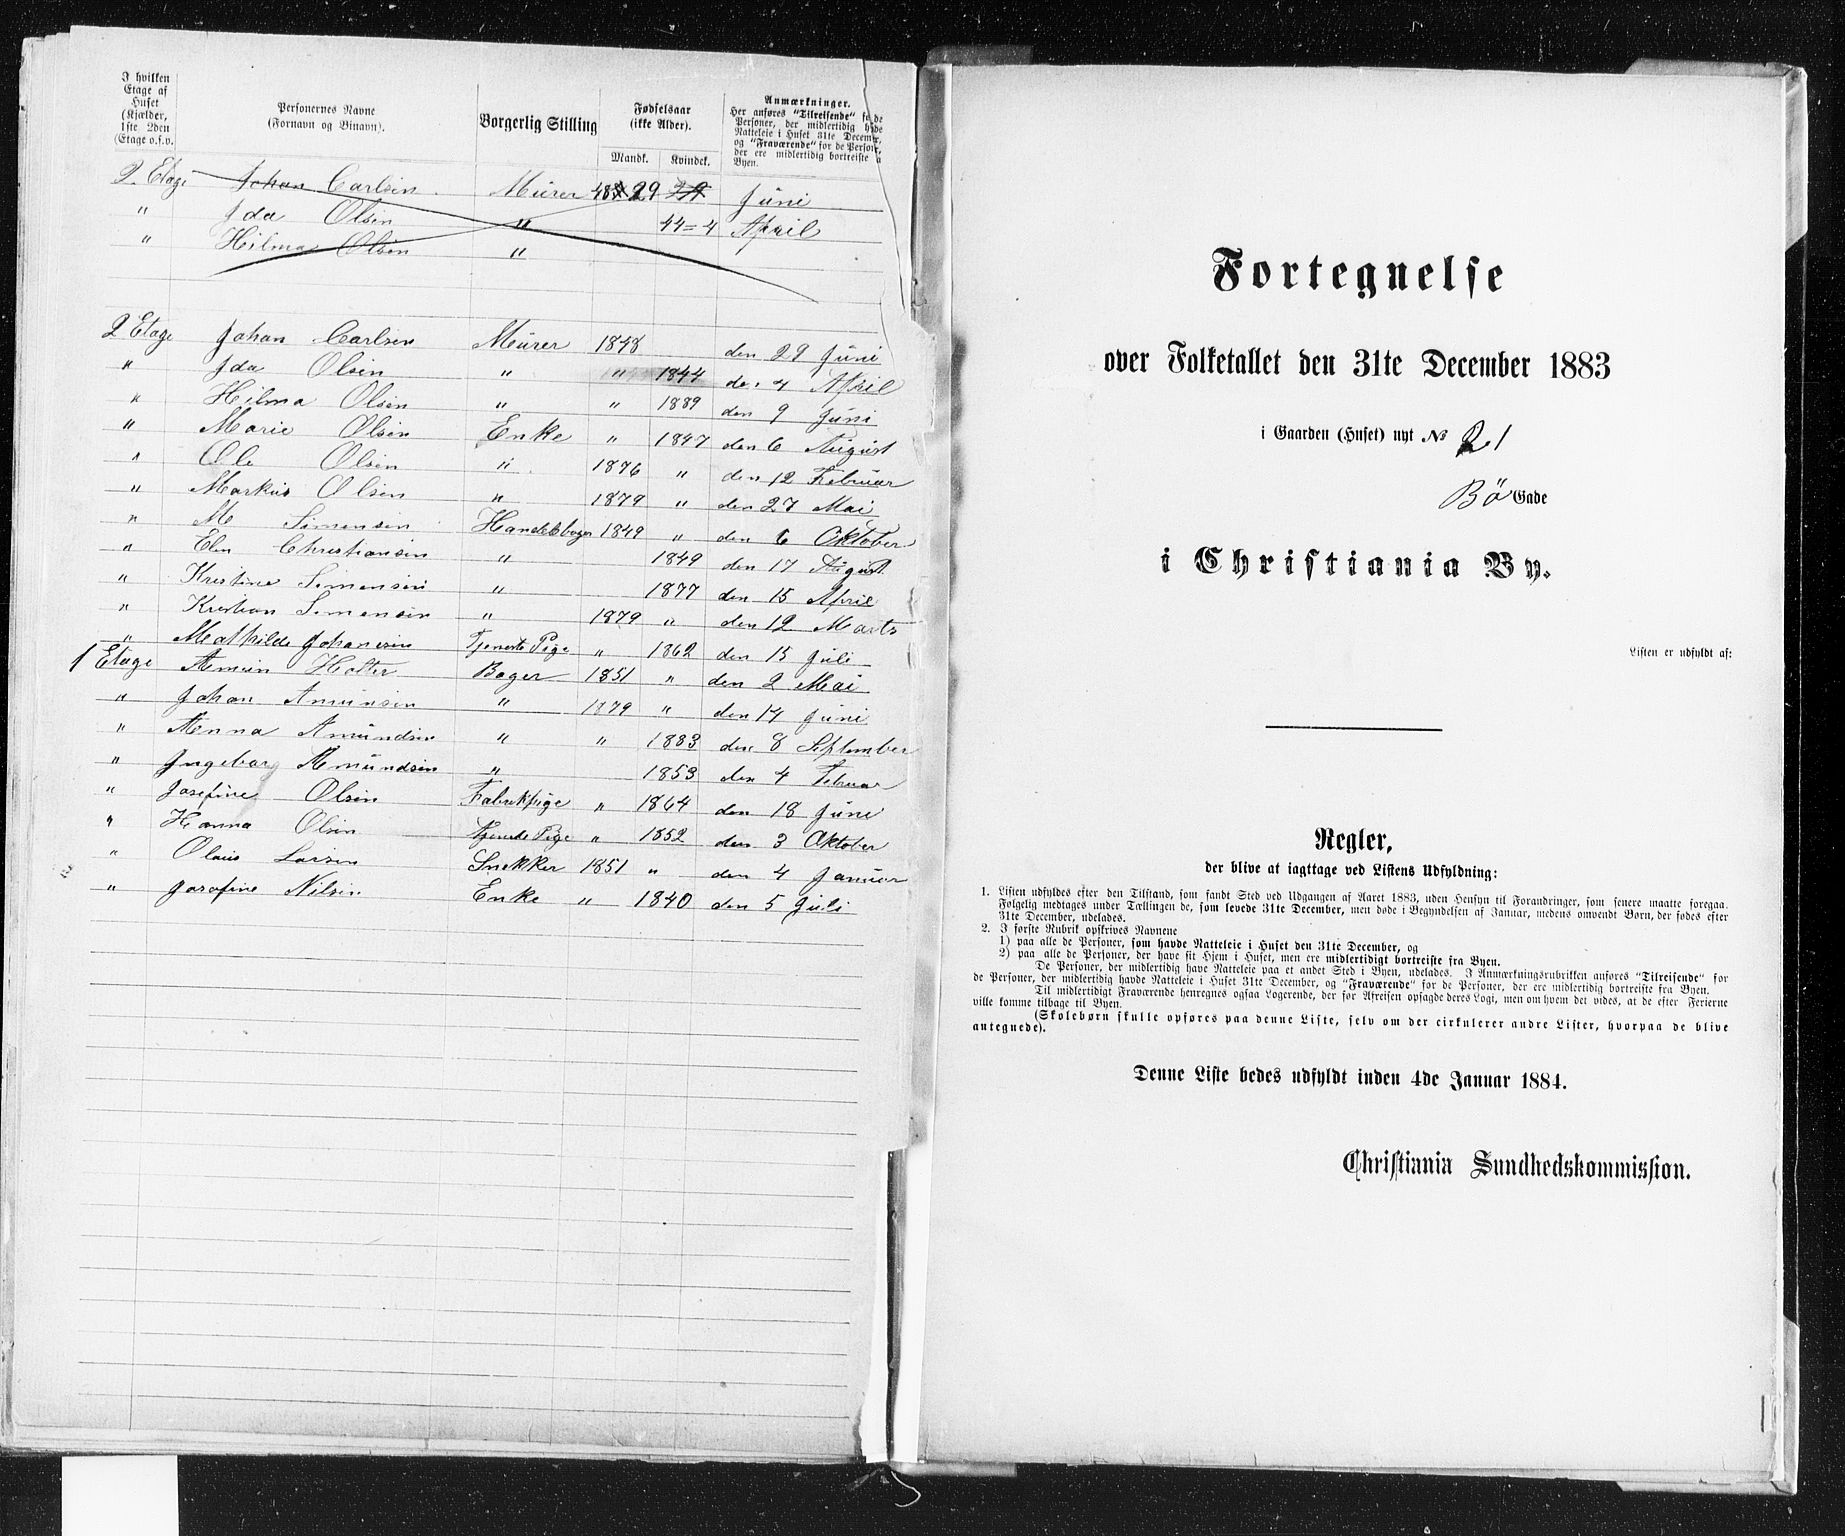 I hvilken
Etage af
Huset
(Kjælder,
1ste 2den
Etage o.s.v.
Personernes Navne
(Fornavn og Binavn).
Borgerlig Stilling
Fødselsaar
(ikke Alder).
Mandk. Kvindek.
Anmærkninger.
Her anføres "Tilreisende" for de
Personer, der midlertidig havde
Natteleie i Huset 31te Decemer,
og "Fraværende" for de Personer,
der ere midlertidig bortreiste a
Byen.
2. Etage Johan Carlsen Murer 48 29 29 Juni
" Ida Olsen " 44=4 April
" Hilma Olsen "
2 Etage Johan Carlsen Murer 1848 den 29 Juni
" Ida Olsen " " 1844 den 4 April
" Hilma Olsen " " 1889 den 9 Juni
" Marie Olsen Enke " 1847 den 6 August
" Ole Olsen " 1876 " den 12 Februar
" Markus Olsen " 1879 " den 27 Mai
" M Simensen Handelsbager 1849 " den 6 Oktober
" Elen Christiansen " 1849 den 17 August
" Kristine Simensen " 1877 den 15 April
" Kristian Simensen " 1879 " den 12 Marts
" Mathilde Johansen Tjeneste Pige " 1862 den 15 Juli
1 Etage Amun Holter Bager 1851 " den 2 Mai
" Johan Amunsen " 1879 " den 14 Juni
" Anna Amundsen " " 1883 den 8 September
" Ingeborg Amundsen " 1853 den 4 Februar
" Josefine Olsen Fabrikpige " 1864 den 18 Juni
" Hanna Olsen Tjeneste Pige " 1852 den 3 Oktober
" Olaus Larsen Snekker 1851 " den 4 Januar
" Josefine Nilsen Enke " 1840 den 5 Juli
Fortegnelse
over Folketallet den 31te December 1883
i Gaarden (Huset) nyt No 21
Bö Gade
i Christiania By.
Listen er udfyldt af:
Regler,
der blive at iagttage ved Listens Udfyldning:
1. Listen udfyldes efter den Tilstand, som fandt Sted ved Udgangen af Aaret 1883, uden Hensyn til Forandringer, som senere maatte foregaa.
Følgelig medtages under Tællingen de, som levede 31te December, men døde i Begyndelsen af Januar, medens omvendt Børn, der fødes efter
31te December, udelades.
2. I første Rubrik opskrives Navnene
1) paa alle de Personer, som havde Natteleie i Huset den 31te December, og
2) paa alle de Personer, der have sit Hjem i Huset, men ere midlertidigt bortreiste fra Byen.
De Personer, der midlertidig have Natteleie paa et andet Sted i Byen, udelades. I Anmærkningsrubrikken anføres "Tilreisende" for
de Personer, der midlertidig havde Natteleie i Huset 31te December, og "Fraværende" for de Personer, der ere midlertidig bortreiste fra Byen.
Til midlertidigt Fraværende henregnes ogsaa Logerende, der før Afreisen opsagde deres Logi, men om hvem det vides, at de efter Ferierne
ville komme tilbage til Byen.
(Skolebørn skulle opføres paa denne Liste, selv om der cirkulerer andre Lister, hvorpaa de blive
antegnede).
Denne Liste bedes udfyldt inden 4de Januar 1884.
Christiania Sundhedskommission.